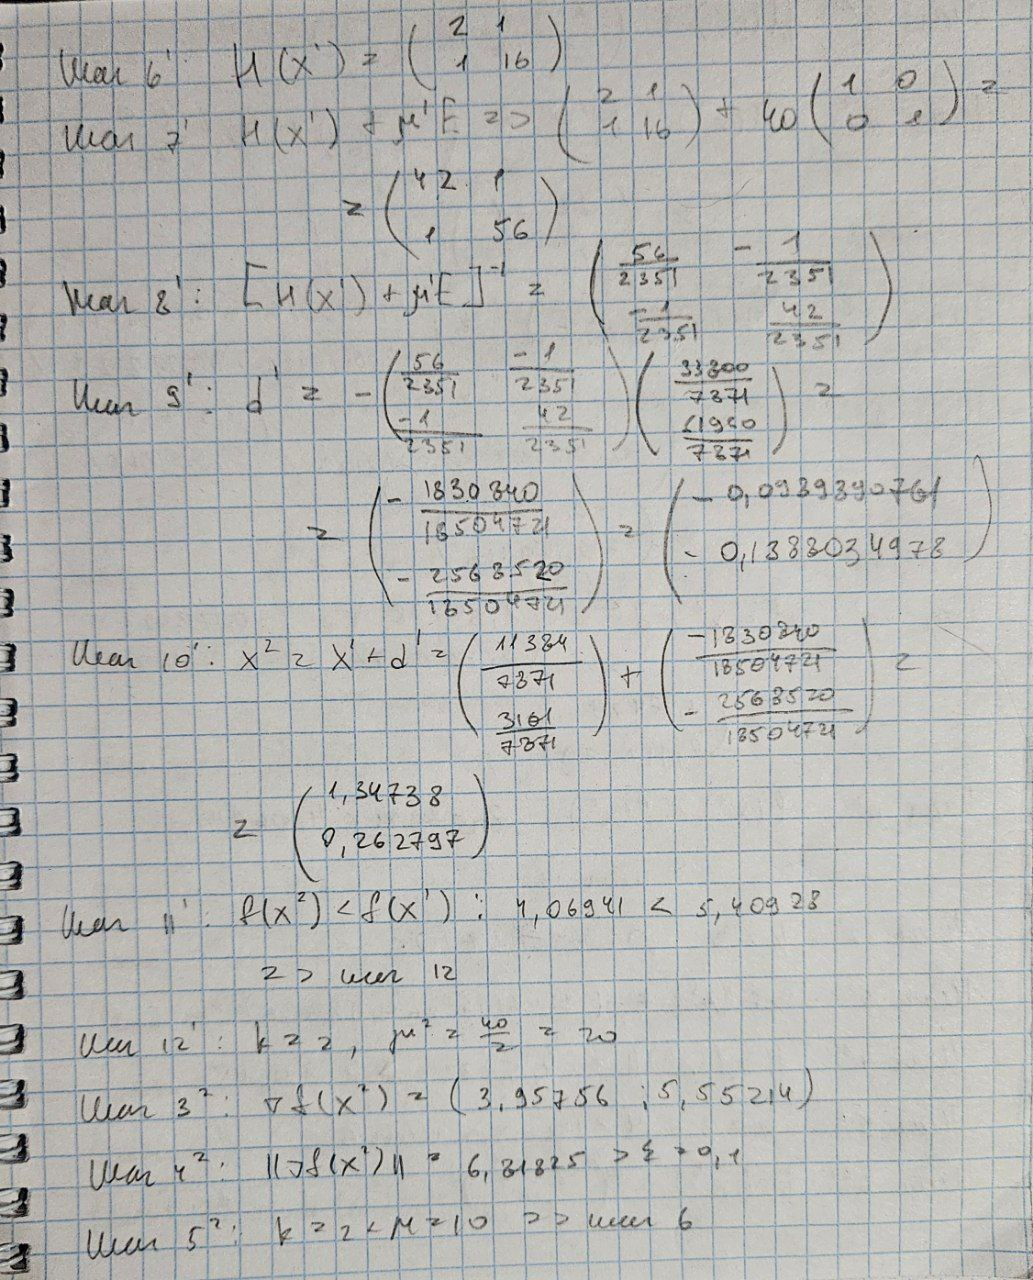 Шаг 6¹: H(x¹) = (2 1; 1 16)
Шаг 7¹ H(x¹) + μ¹E => (2 1; 1 16) + 40 (1 0; 0 1) =
= (42 1; 1 56)
Шаг 8¹: [H(x¹) + μ¹E]⁻¹ = (56/2351 -1/2351; -1/2351 42/2351)
Шаг 9¹: d¹ = -(56/2351 -1/2351; -1/2351 42/2351) (33300/7371; 41950/7371) =
= (-1830340/18504721; -2563520/18504721) = (-0,0939390761; -0,1383034978)
Шаг 10¹: x² = x¹ + d¹ = (11384/7371; 3161/7371) + (-1830340/18504721; -2563520/18504721) =
= (1,34738; 0,262797)
Шаг 11¹: f(x²) < f(x¹) : 4,06941 < 5,40928
=> шаг 12
Шаг 12¹: k = 2, μ² = 40/2 = 20
Шаг 3²: ∇f(x²) = (3,95756 ; 5,55214)
Шаг 4²: ||∇f(x²)|| = 6,31825 > ε = 0,1
Шаг 5²: k = 2 < M = 10 => шаг 6